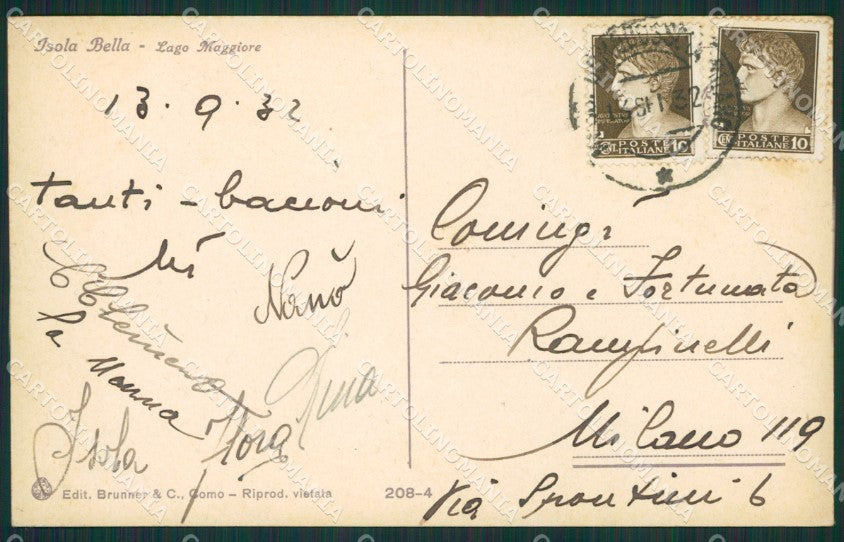 Isola Bella - Lago Maggiore
13 · 9 · 32
tanti - bacioni
Nino
la Nonna
Isola
Dina
Edit. Brunner & C., Como – Riprod. vietata
208-4
POSTE
ITALIANE
CENT 10
POSTE
ITALIANE
CENT 10
Coniugi
Giacomo e Fortunata
Rampinelli
Milano 119
Via Spontini 6
CARTOLINOMANIA